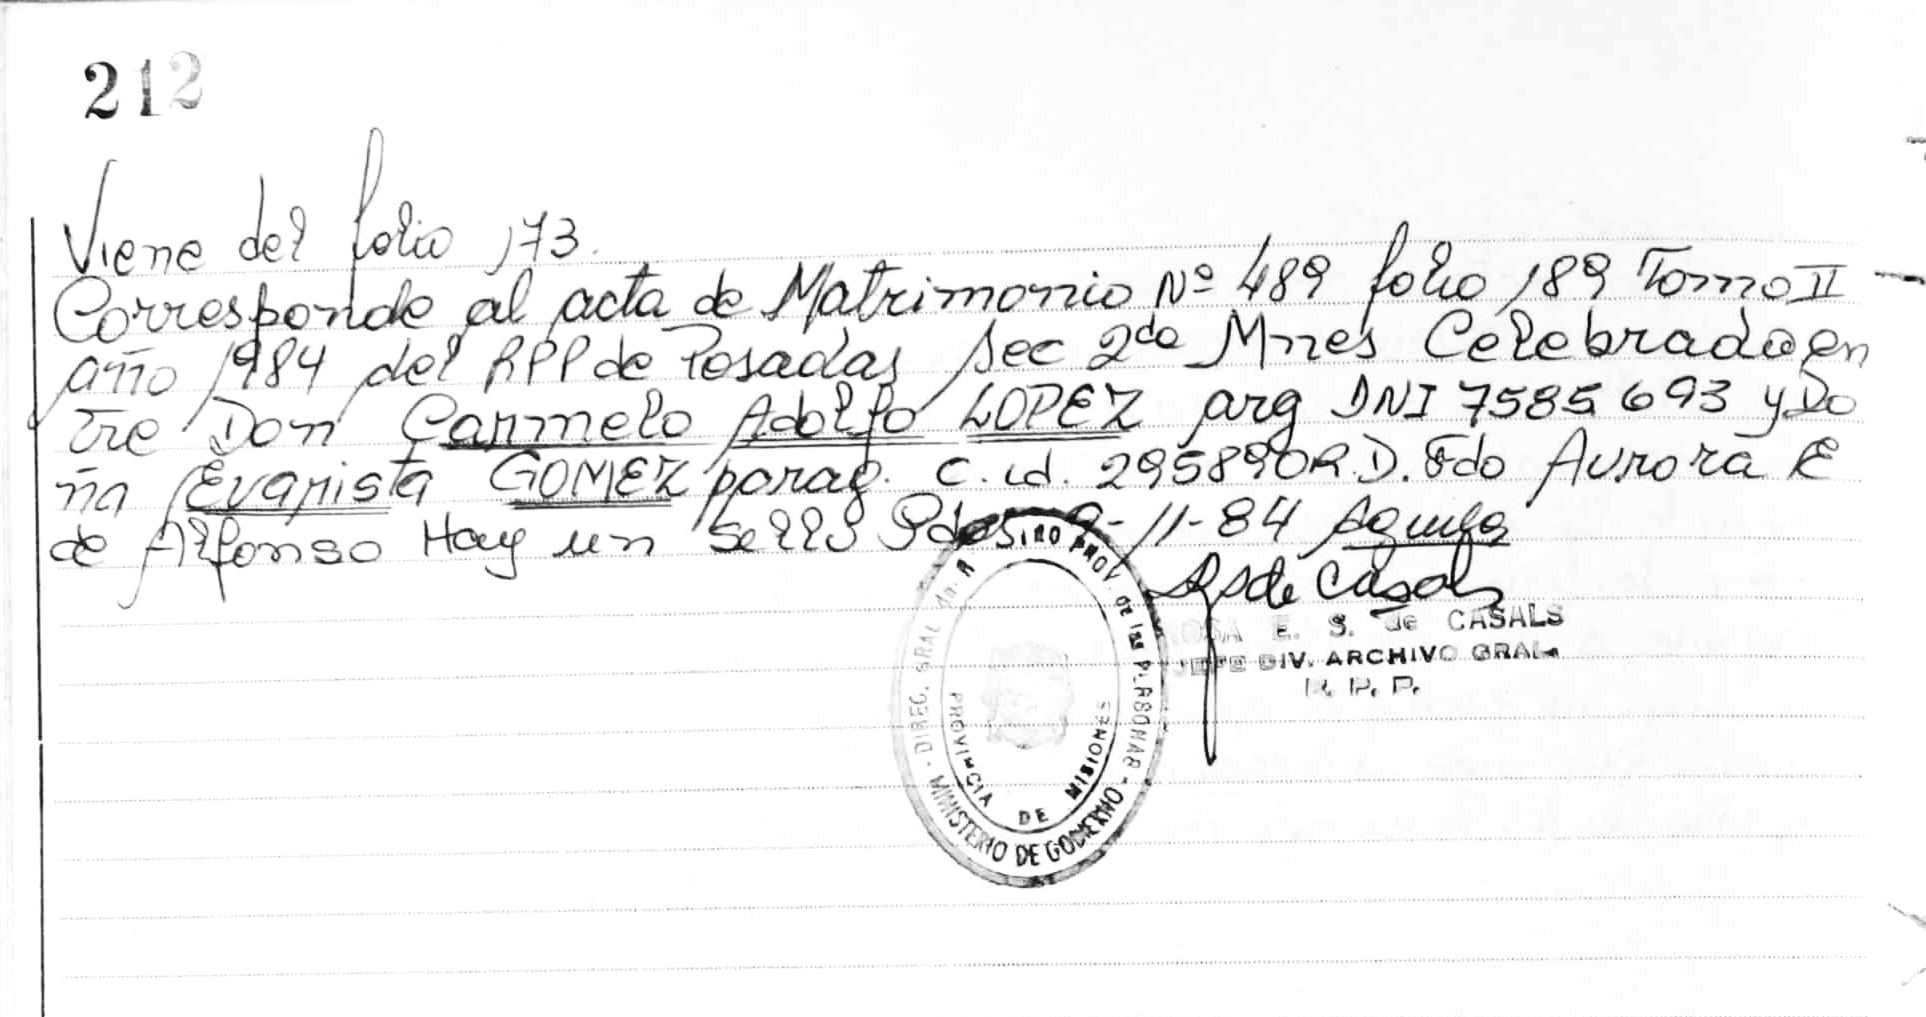 212
Viene del folio 173.
Corresponde al acta de Matrimonio Nº 489 folio 189 Tomo II
año 1984 del RPP de Posadas Sec 2da Mnes Celebrado en
tre Don Carmelo Adolfo LOPEZ arg DNI 7585693 y Do
ña Evarista GOMEZ parag. C. id. 295890 R.D. Fdo Aurora E
de Alfonso Hay un sello Pdas 9-11-84
RSde Casals
ROSA E. S. de CASALS
JEFE DIV. ARCHIVO GRAL.
R. P. P.
DIREC. GRAL de REGISTRO PROV. DE las PERSONAS
MINISTERIO DE GOBIERNO
PROVINCIA DE MISIONES